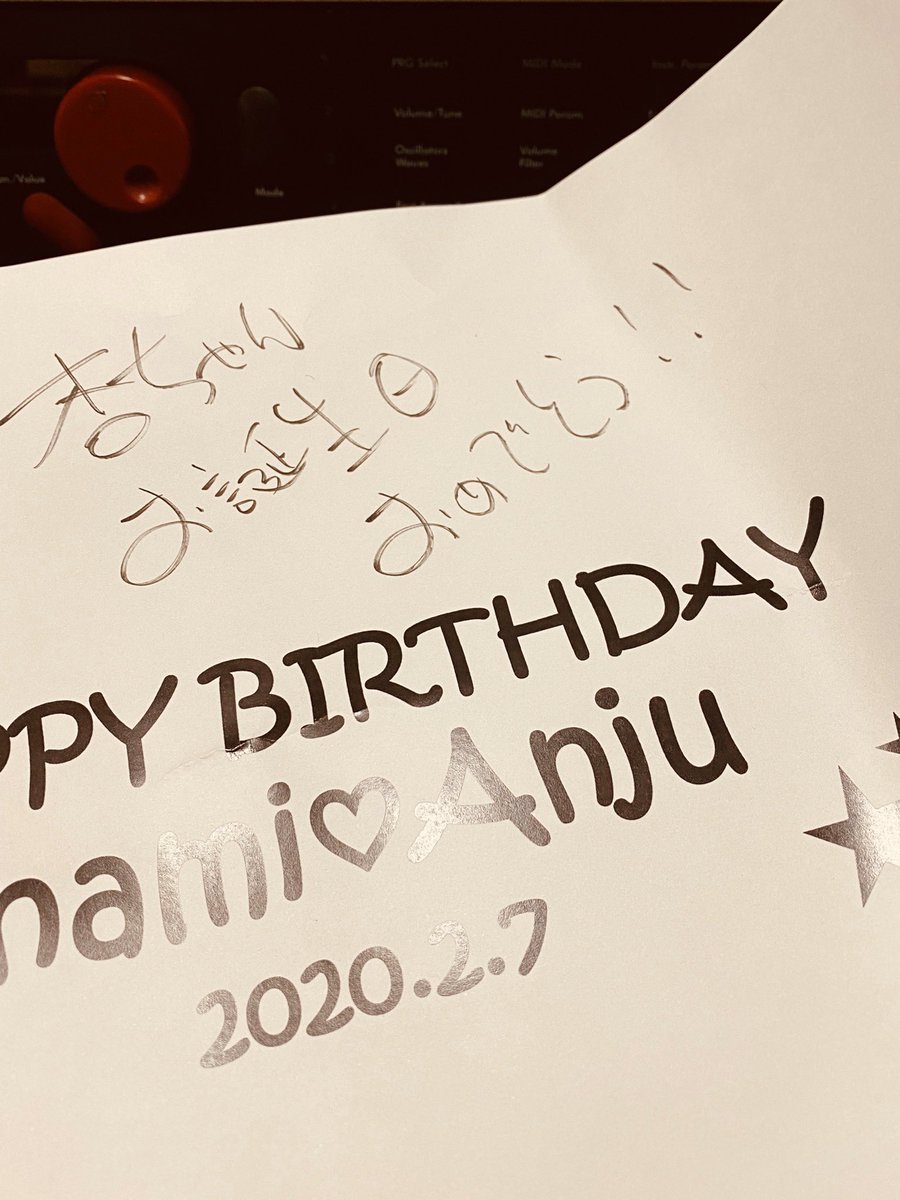 PRG Select MIDI Mode
Volume/Tune MIDI Param
Oscillators Volume
Waves Filter
/Value Mode
杏ちゃん
お誕生日
おめでとう!!
PPY BIRTHDAY
nami♡Anju
2020.2.7